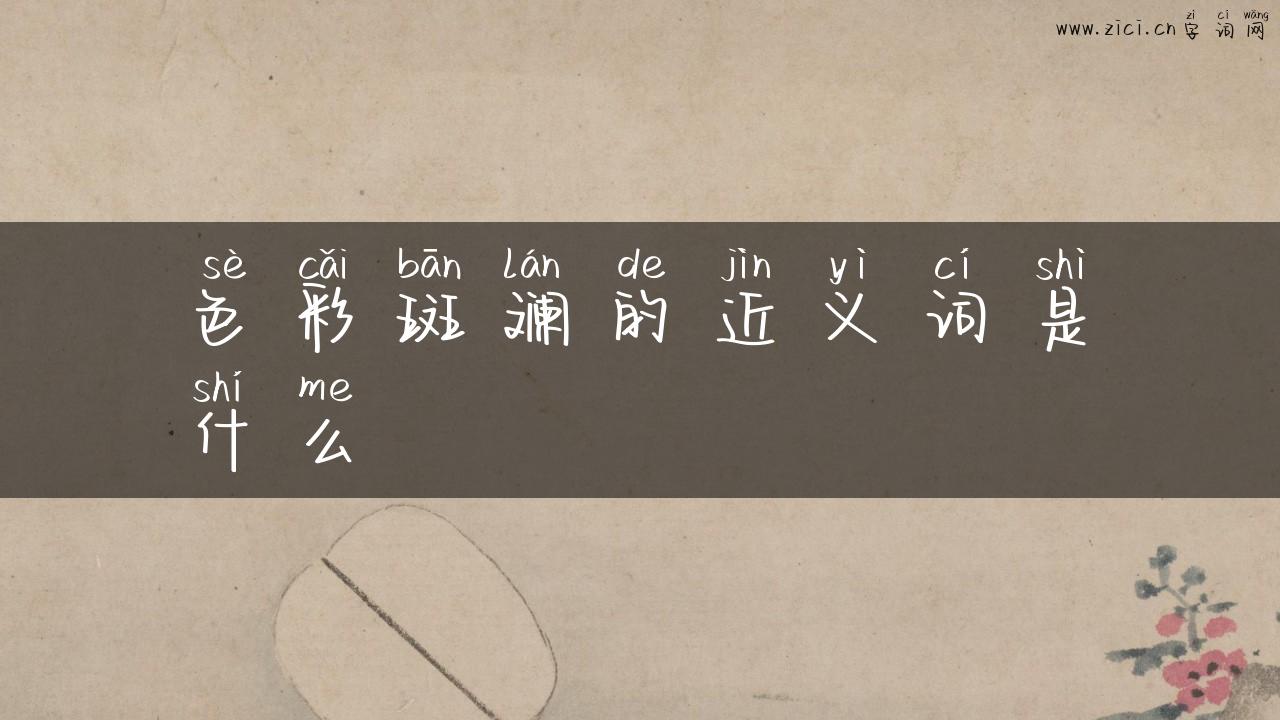 zì cí wǎng
www.zici.cn 字词网
sè cǎi bān lán de jìn yì cí shì
色彩斑斓的近义词是
shí me
什么